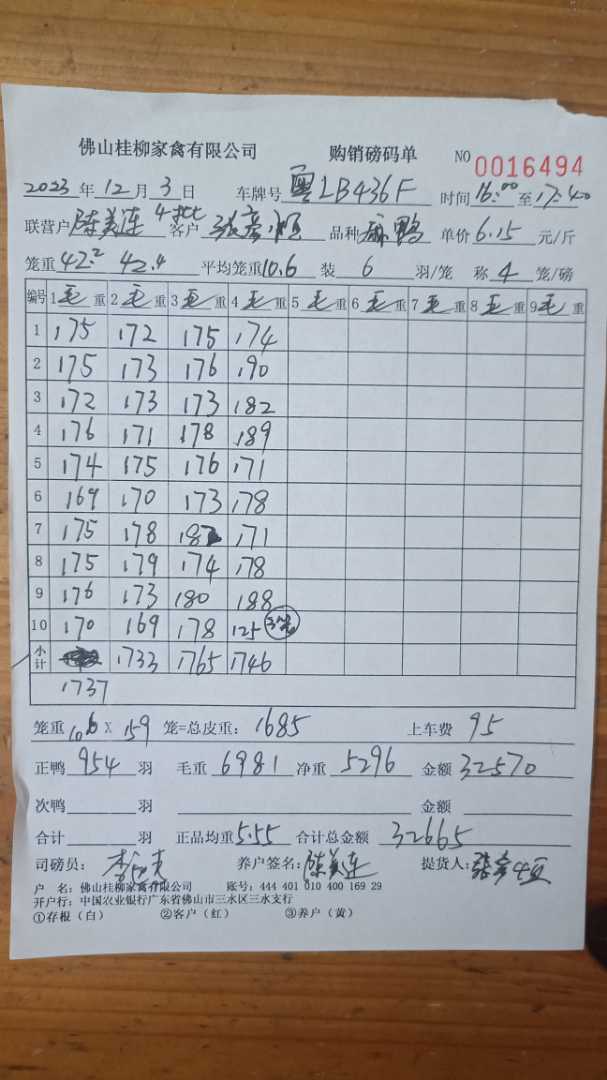 佛山桂柳家禽有限公司 购销磅码单 NO 0016494
2023年12月3日 车牌号 粤LB436F 时间16:00至17:40
联营户 陈美连 4批 客户 张彦恒 品种 麻鸭 单价6.15元/斤
笼重42.2 42.4 平均笼重10.6 装6羽/笼 称4笼/磅
编号 1毛重 2毛重 3毛重 4毛重 5毛重 6毛重 7毛重 8毛重 9毛重
1 175 172 175 174
2 175 173 176 190
3 172 173 173 182
4 176 171 178 189
5 174 175 176 171
6 169 170 173 178
7 175 178 182 171
8 175 179 174 178
9 176 173 180 188
10 170 169 178 125 3笼
小计 1733 1765 1746
1737
笼重10.6X159笼=总皮重:1685 上车费95
正鸭954羽 毛重6981净重5296金额32570
次鸭 羽 金额
合计 羽 正品均重5.55合计总金额32665
司磅员: 养户签名:陈美连 提货人:张彦恒
户 名:佛山桂柳家禽有限公司 账号:444 401 010 400 169 29
开户行:中国农业银行广东省佛山市三水区三水支行
①存根(白) ②客户(红) ③养户(黄)